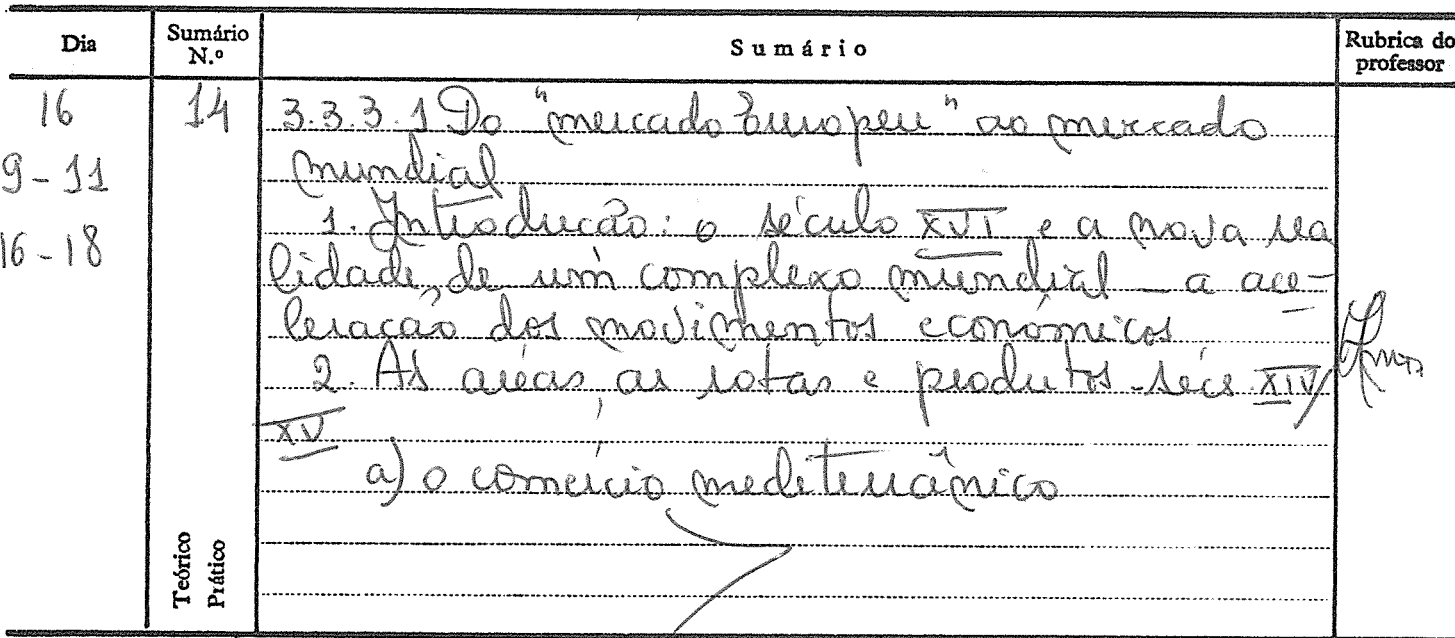 Dia
Sumário
N.º
Sumário
Rubrica do
professor
16
9-11
16-18
14
3.3.3.1 Do "mercado Europeu" ao mercado
mundial
1. Introdução: o século XVI e a nova rea
lidade de um complexo mundial - a ace-
leração dos movimentos económicos
2. As áreas, as rotas e produtos - sécs XIV/
XV
a) o comércio mediterrânico
Teórico
Prático